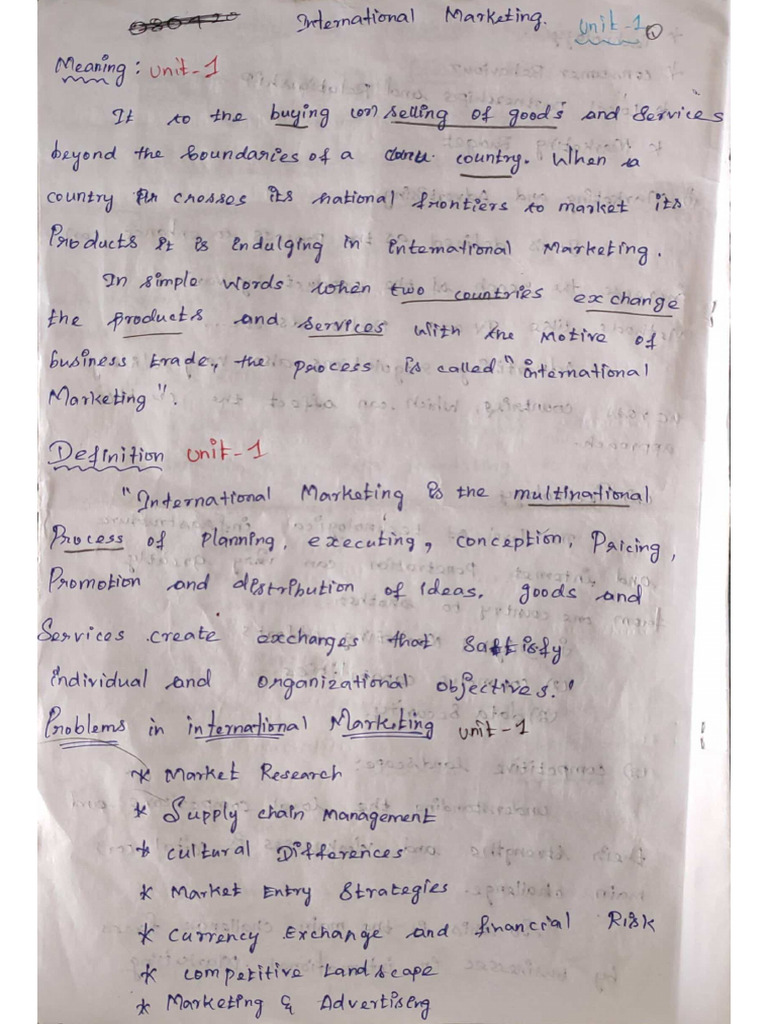 International Marketing. Unit-1 1
Meaning : Unit-1
It to the buying (or) selling of goods and Services
beyond the boundaries of a country. When a
country crosses its national frontiers to market its
Products it is indulging in international Marketing.
In simple words when two countries exchange
the products and services with the Motive of
business trade, the process is called "international
Marketing".
Definition Unit-1
"International Marketing is the multinational
Process of planning, executing, conception, Pricing,
Promotion and distribution of ideas, goods and
Services create exchanges that Sattisfy
individual and organizational objectives."
Problems in international Marketing Unit-1
* Market Research
* Supply chain Management
* Cultural Differences
* Market Entry Strategies
* Currency Exchange and financial Risk
* Competitive Landscape
* Marketing & Advertising